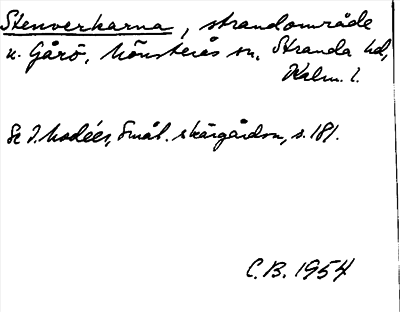 Stenverkarna, strandområde
n. Gårö, Mönsterås sn, Stranda hd,
Kalm. l.
Se I. Modéer, Smål. skärgårdsn, s. 181.
C.B. 1954